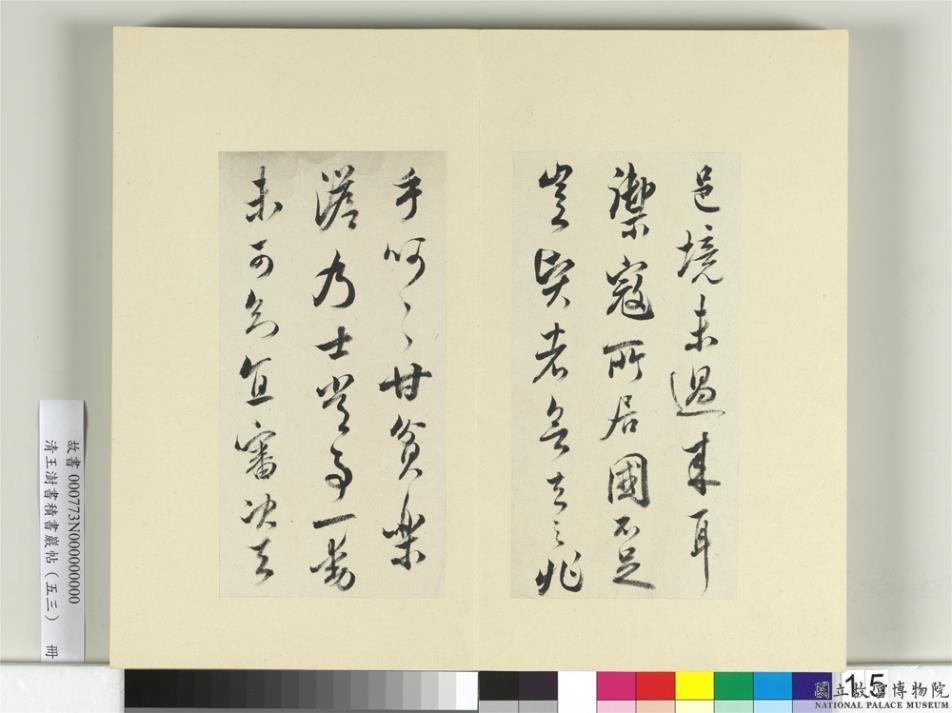 邑境未過來耳
禦寇所居國不足
豈賢者去之兆
乎呵〻甘貧樂
澹乃士常事一動
未可宜審決去
故書 000773N000000000
清王澍書積書巖帖(五三) 冊
15
國立故宮博物院
NATIONAL PALACE MUSEUM